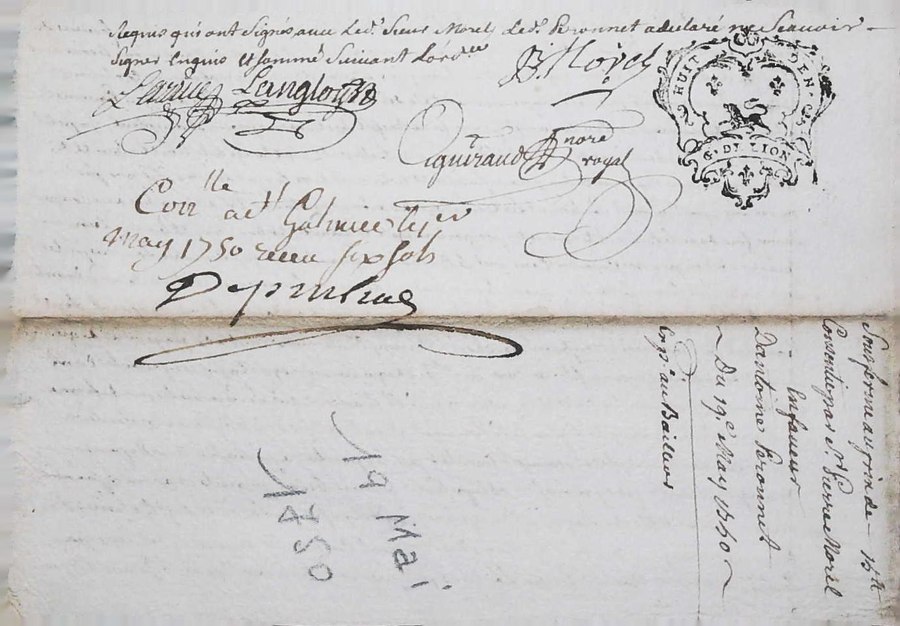 Requis qui ont Signés avec Led. Sieur Morel, Led. Peronnet a declaré ne Scavoir
Signer Enquis et sommé Suivant L'ord.ce
Langlois
B. Morel
HUIT DEN.
G. D. LION
Eguiraud nore
royal
Con.lle a St Galmier le
may 1750 receu six sols
Sousferme au prix de 15 #
Consentie par Sr Pierre Morel
En faveur
D'antoine Peronnet
~ Du 19.e May 1750 ~
Exp. au Bailleur
19 Mai
1750